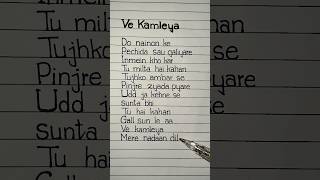 Ve Kamleya
Do nainon ke
Pechida sau galiyare
Inmein kho kar
Tu milta hai kahan
Tujhko ambar se
Pinjre zyada pyare
Udd ja kehne se
sunta bhi
Tu hai kahan
Gall sun le aa
Ve kamleya
Mere nadaan dil
Tu hai
sunta